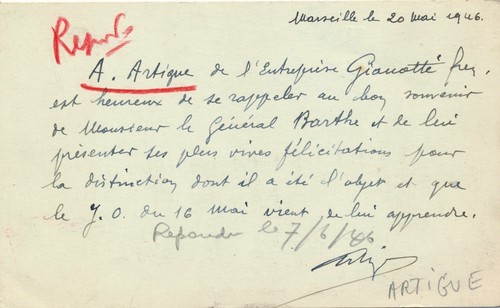 Marseille le 20 Mai 1946.
A. Artigue de l'Entreprise Gianotté frer,
est heureux de se rappeler au bon souvenir
de Monsieur le Général Barthe et de lui
présenter ses plus vives félicitations pour
la distinction dont il a été l'objet et que
le J.O. du 16 Mai vient de lui apprendre.
le 7/6/46
ARTIGUE